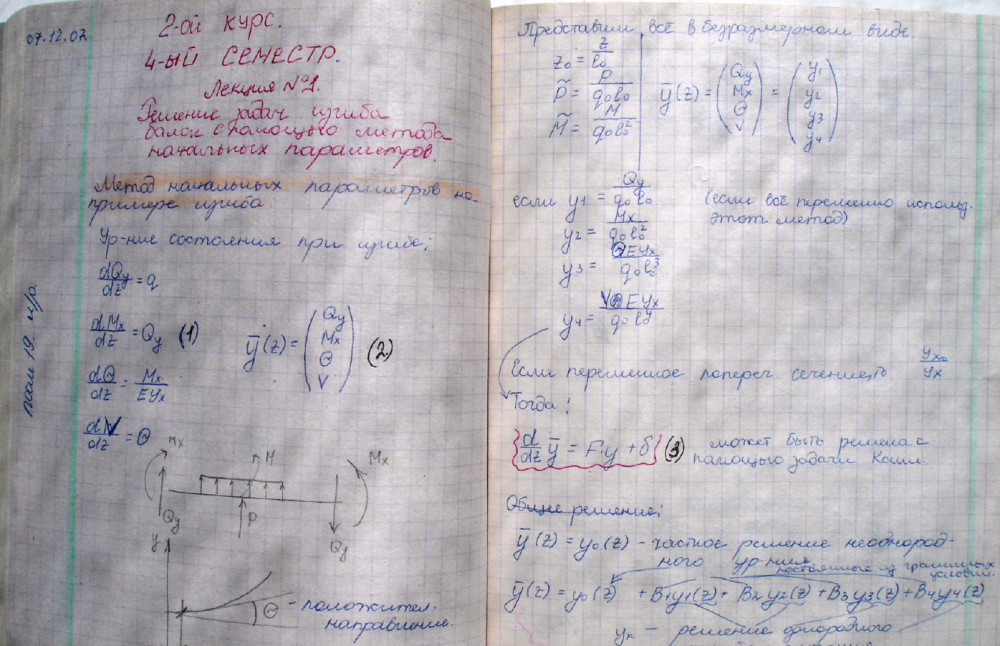 07.12.02
2-ой курс.
4-ый семестр.
Лекция №1.
Решение задач изгиба
балок с помощью метода
начальных параметров.
Метод начальных параметров на
примере изгиба
Ур-ние состояния при изгибе:
dQy/dz = q
dMx/dz = Qy (1)
ȳ(z) = (Qy Mx Θ V) (2)
dΘ/dz = Mx/EYx
dV/dz = Θ
Mx M Mx
Qy P Qy
y
Θ - положител.
направление.
Представим всё в безразмерном виде.
z₀ = z/l₀
P̃ = P/q₀l₀
M̃ = M/q₀l₀²
ȳ(z) = (Qy Mx Θ V) = (y1 y2 y3 y4)
если y1 = Qy/q₀l₀ (если всё переменно использ.
y2 = Mx/q₀l₀² этот метод)
y3 = ΘEYx/q₀l₀³
y4 = VEYx/q₀l₀⁴
Если переменное попереч сечение, то Yx₀/Yx
Тогда:
{d/dz ȳ = F·y + b} (3) может быть решена с
помощью задачи Коши.
Общее решение:
ȳ(z) = y₀(z) - частное решение неоднород-
ного ур-ния
постоянные из граничных
условий.
ȳ(z) = y₀(z) + B1y1(z) + B2y2(z) + B3y3(z) + B4y4(z)
- решение однородного